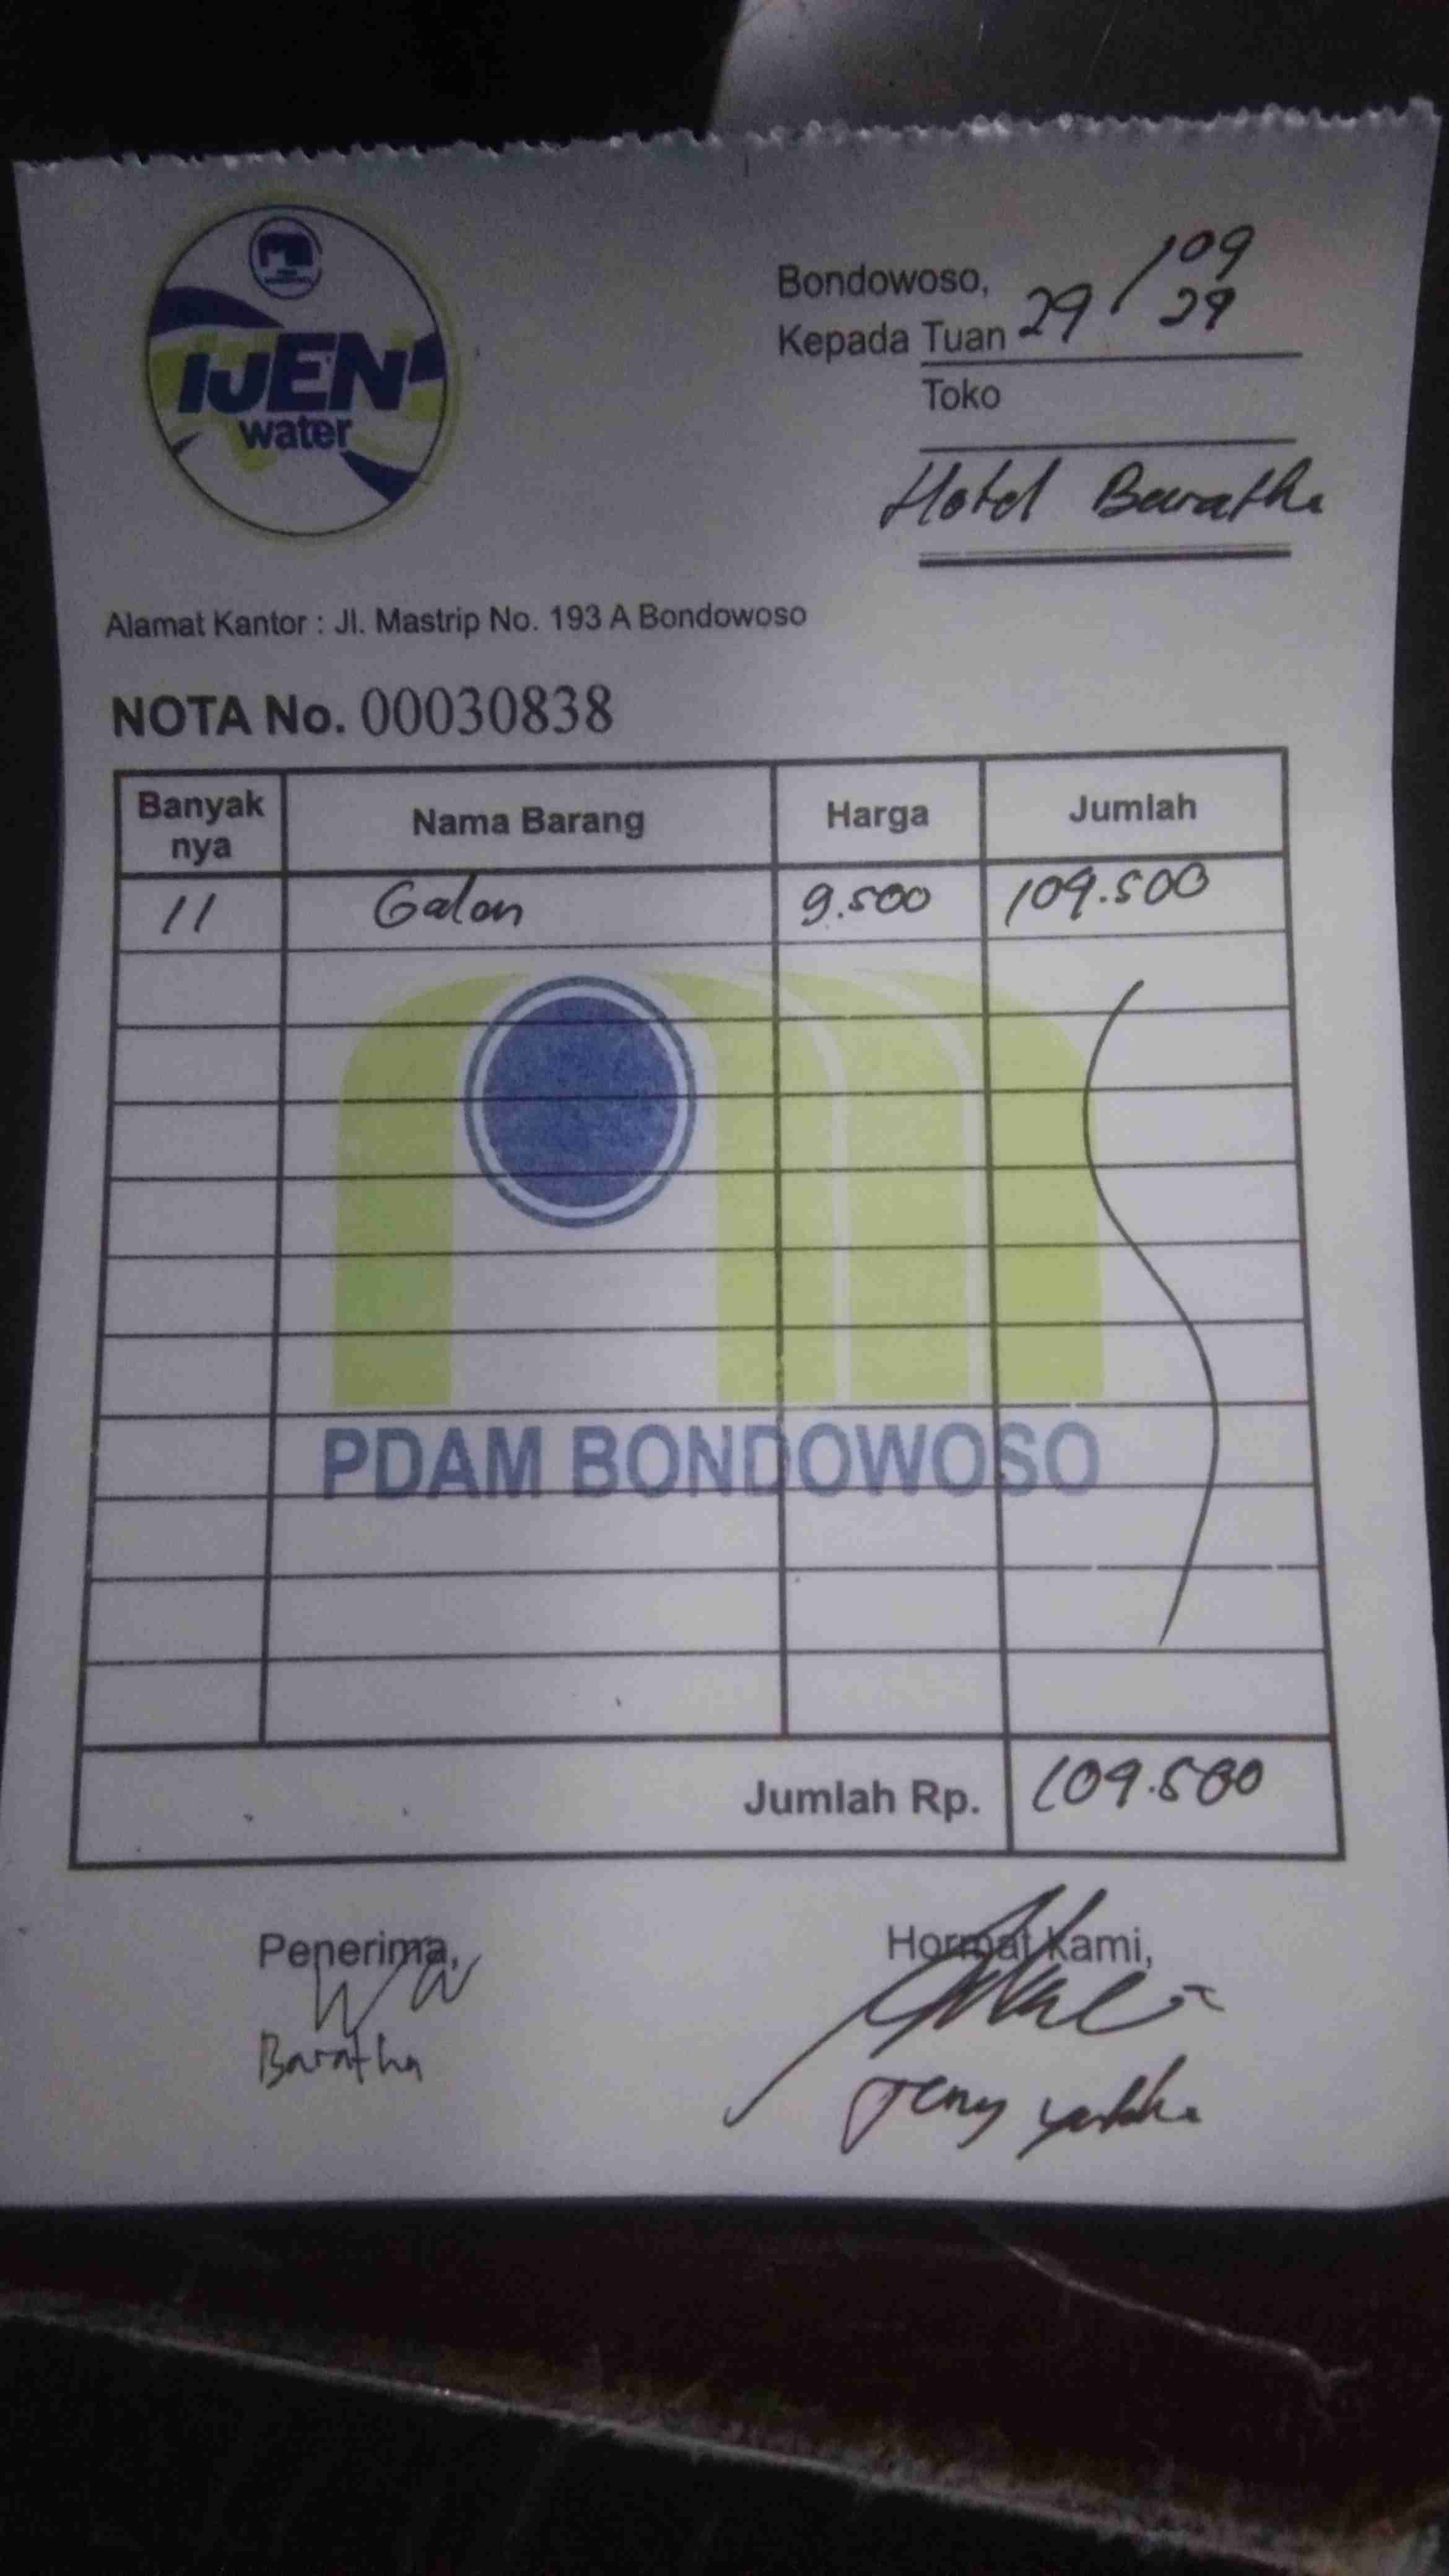 IJEN
water
Bondowoso, 29 / 09
29
Kepada Tuan
Toko
Hotel Baratha
Alamat Kantor : Jl. Mastrip No. 193 A Bondowoso
NOTA No. 00030838
Banyak nya Nama Barang Harga Jumlah
11 Galon 9.500 109.500
PDAM BONDOWOSO
Jumlah Rp. 109.500
Penerima, Hormat Kami,
Baratha